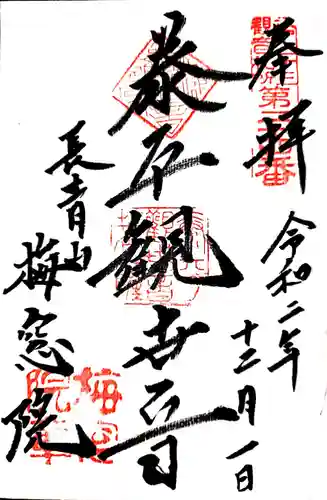 奉拝
令和二年
十二月一日
泰平観世音
長青山
梅窓院